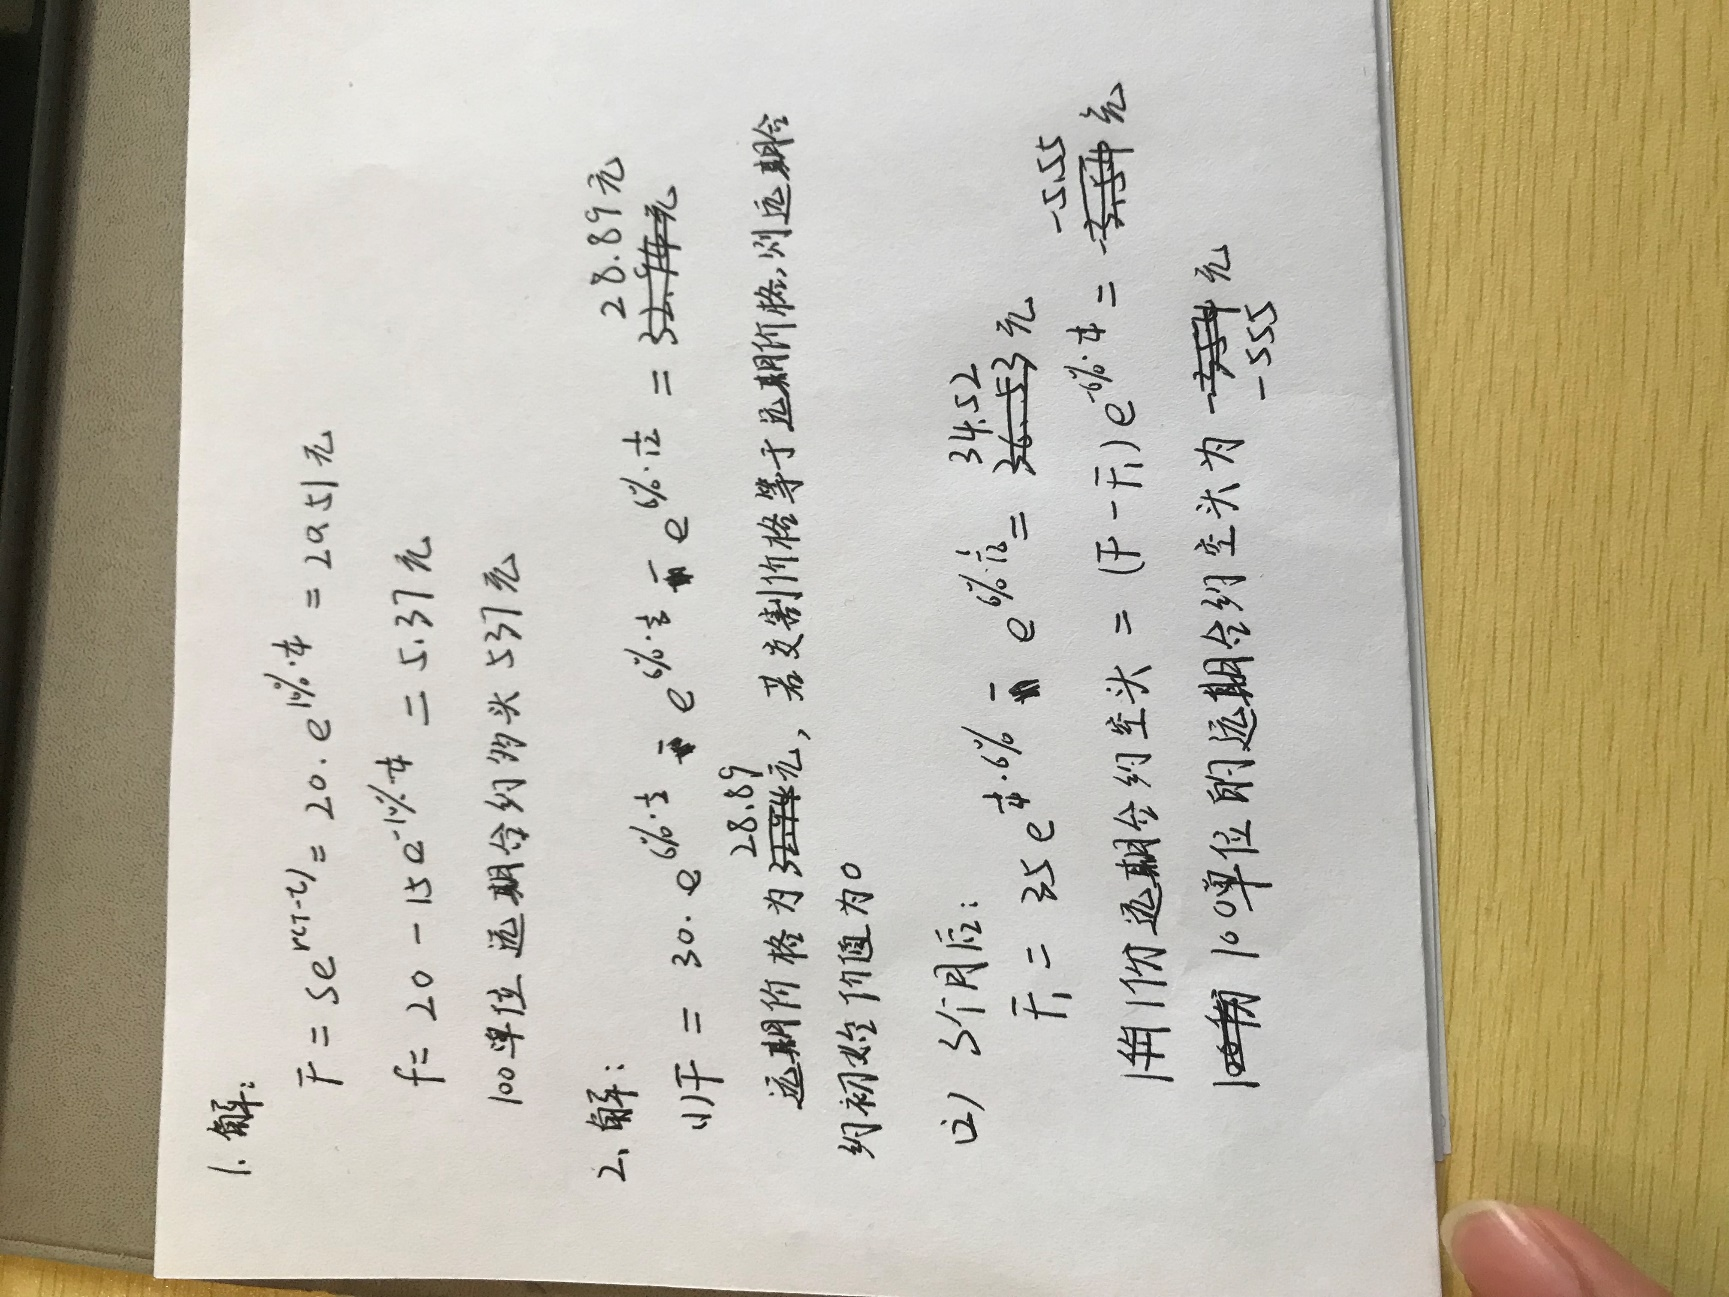 1. 解:
F = Se^{r(T-t)} = 20·e^{10%·1/4} = 20.51元
f = 20 - 15e^{-10%·1/4} = 5.37元
100单位远期合约多头 537元
2、解:
(1) F = 30·e^{6%·1/2} - e^{6%·1/3} - e^{6%·1/12} = 28.89元
远期价格为28.89元, 若交割价格等于远期价格, 则远期合
约初始价值为0
(2) 3个月后:
F₁ = 35e^{1/4·6%} - e^{6%·1/12} = 34.52元
1份远期合约空头 = (F - F₁)e^{-6%·1/4} = -5.55元
100单位的远期合约空头为 -555元